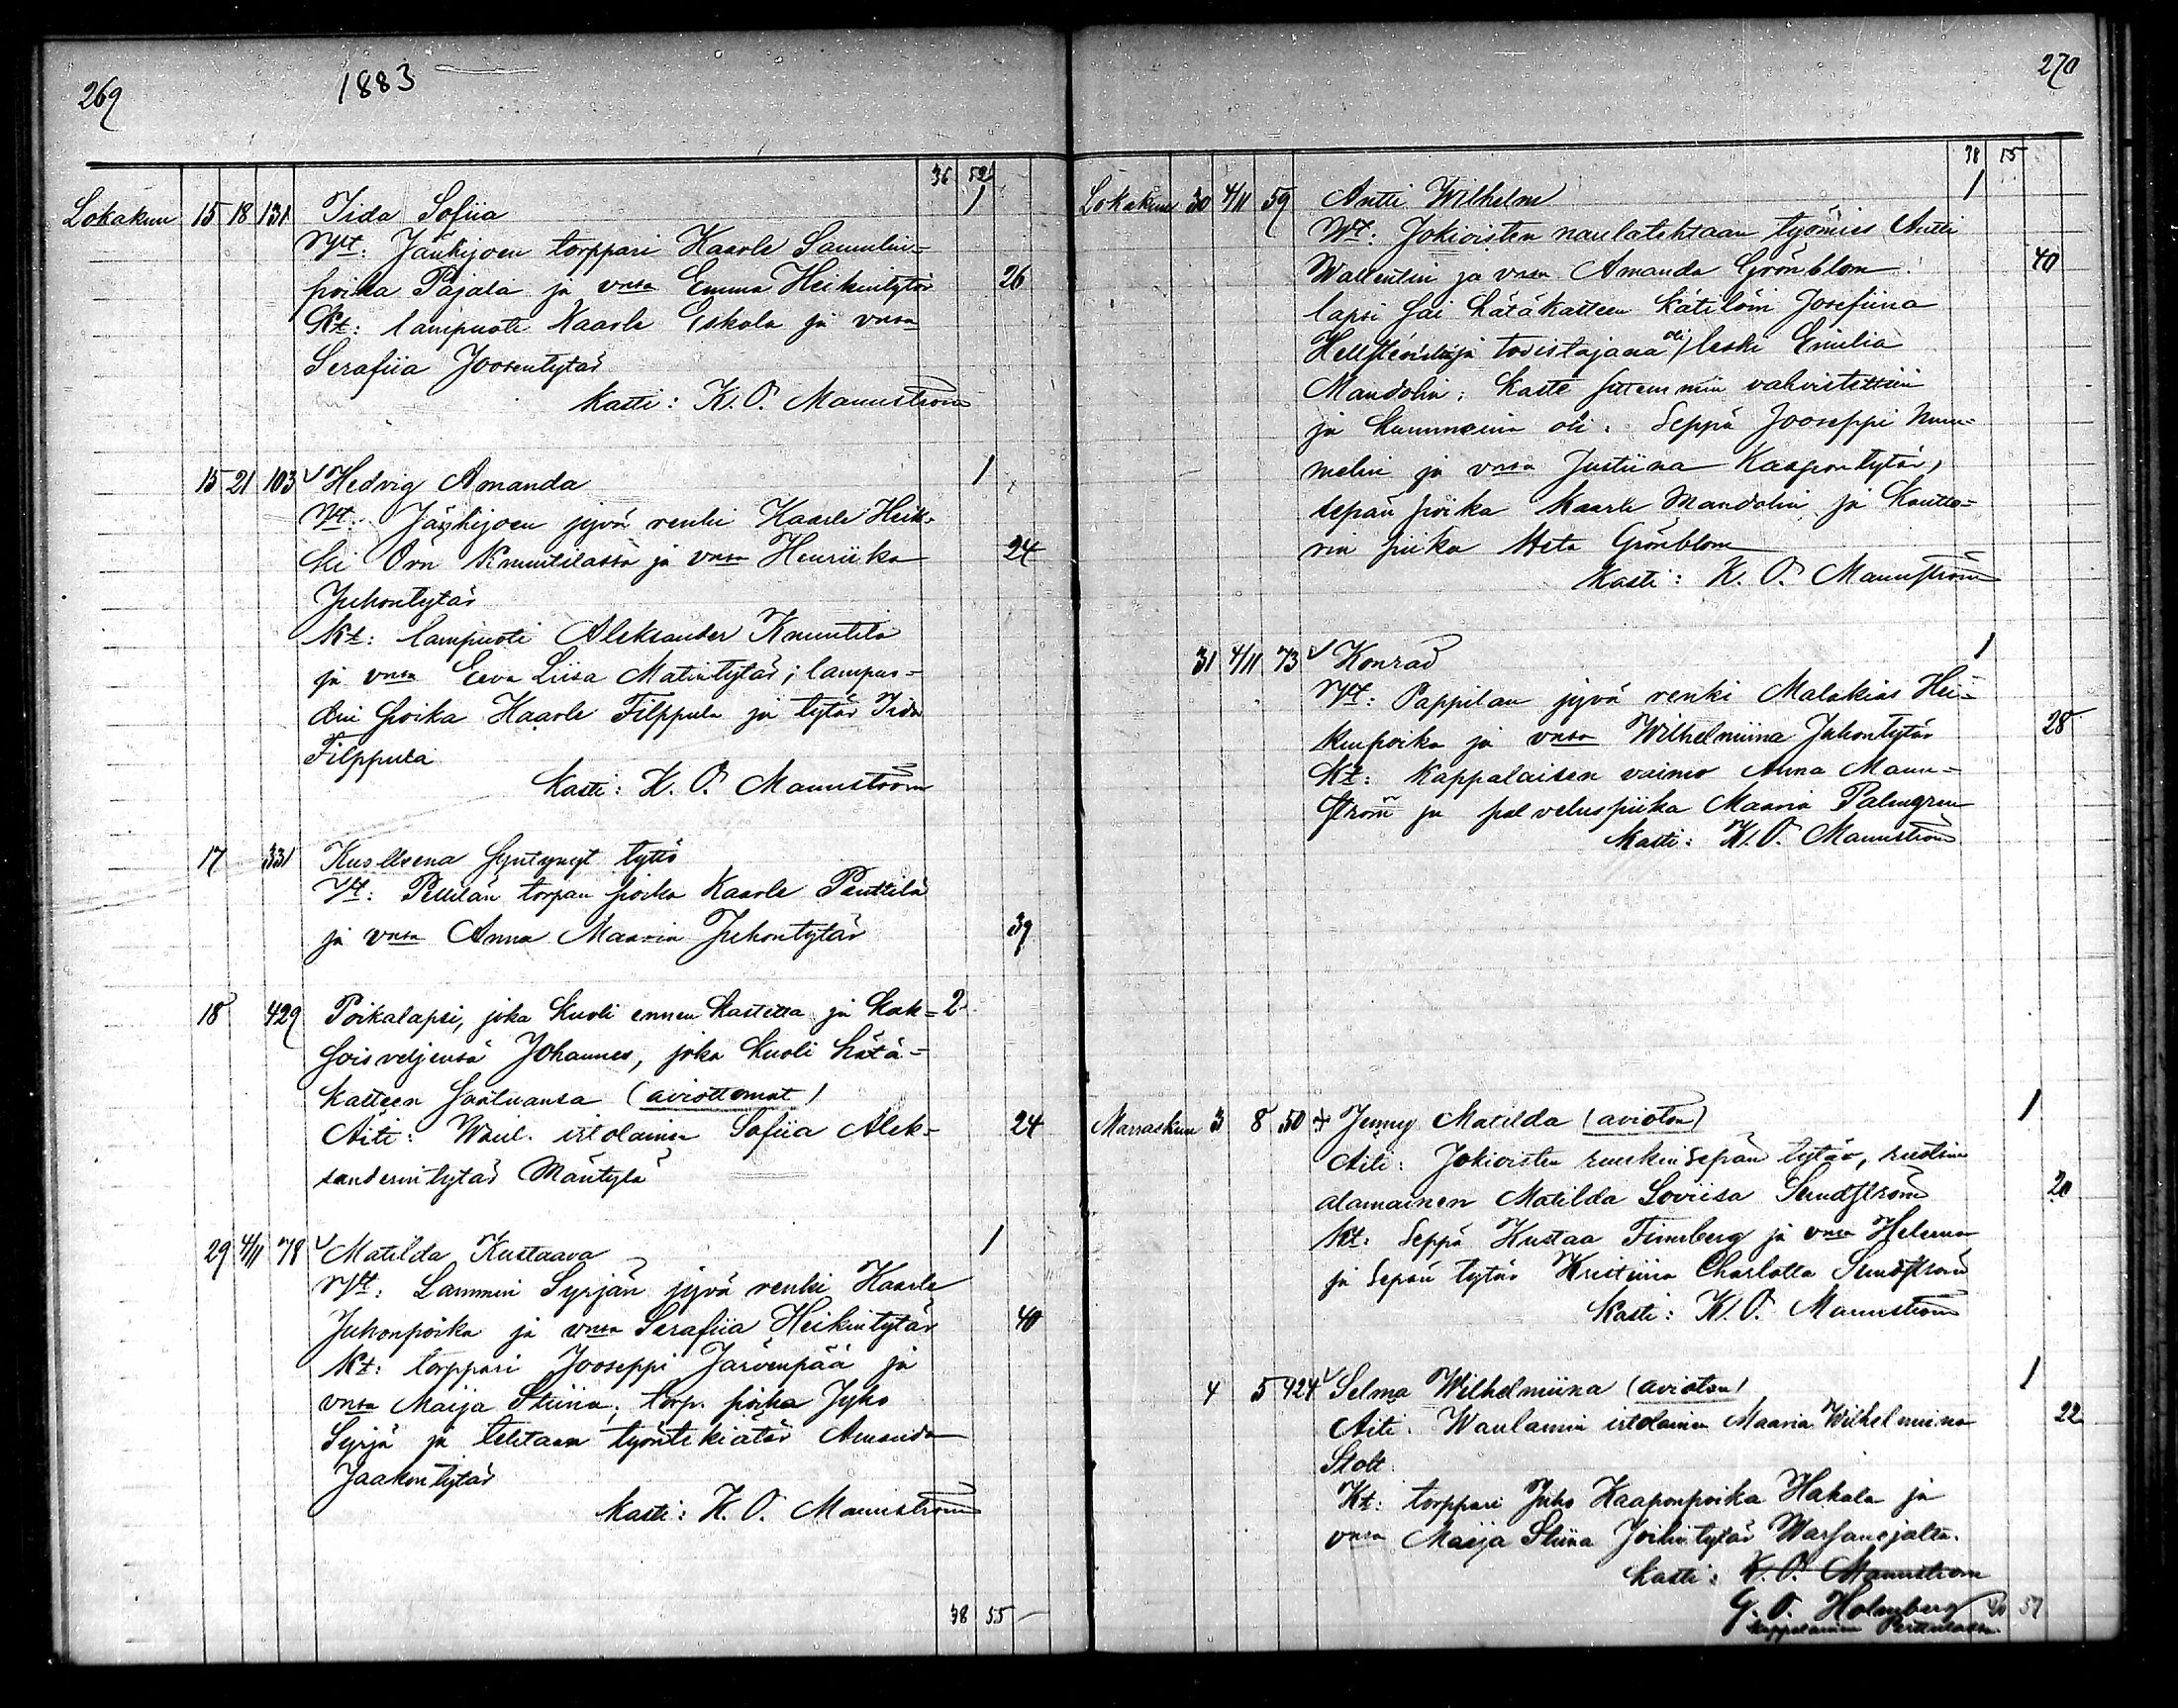 269
1883
36 52
Lokakuu 15 18 131 Iida Sofiia 1
Vht: Jänhijoen torppari Kaarle Samulin=
poika Pajala ja vmsa Emma Heikintytär 26
Kt: lampuoti Kaarle Eskola ja vmsa
Serafiia Joosentytär
Kasti: K. O. Mannström
15 21 103 Hedvig Amanda 1
Vht: Jänhijoen jyvä renki Kaarle Heik-
ki Örn Knuutilassa ja vmsa Henriika 24
Juhontytär
Kt: lampuoti Aleksander Knuutila
ja vmsa Eeva Liisa Matintytär; lampuo=
din poika Kaarle Filppula ja tytär Iida
Filppula
Kasti: K. O. Mannström
17 331 Kuolleena syntynyt tyttö
Vht: Pellilän torpan poika Kaarle Penttilä
ja vmsa Anna Maaria Juhontytär 39
18 429 Poikalapsi, joka kuoli ennen kastetta ja kak= 2
soisveljensä Johannes, joka kuoli hätä=
kasteen saatuansa (aviottomat)
Äiti: Waul. irtolainen Sofiia Alek= 24
sanderintytär Mäntylä
29 4/11 78 Matilda Kustaava 1
Vht: Lammin Syrjän jyvä renki Kaarle
Juhonpoika ja vmsa Serafiia Heikintytär 40
Kt: torppari Jooseppi Järvenpää ja
vmsa Maija Stiina; torp. poika Jyho
Syrjä ja tehtaan työntekiätär Amanda
Jaakontytär
Kasti: K. O. Mannström
38 55
270
38 55
Lokakuu 30 4/11 59 Antti Wilhelm 1
Vht: Jokioisten naulatehtaan työmies Antti
Wallentin ja vmsa Amanda Grönblom. 40
lapsi sai hätäkasteen kätilöin Josefiina
todistajana oli leski Emilia
Mandolin; kaste sittemmin vahvistettiin
ja kummeina oli: Seppä Jooseppi Num=
melin ja vmsa Justiina Kaapontytär,
sepän poika Kaarle Mandolin ja kantto=
rin piika Meta Grönblom
Kasti: K. O. Mannström
31 4/11 73 Konrad 1
Vht: Pappilan jyvä renki Malakias Hei=
kinpoika ja vmsa Wilhelmiina Juhontytär 28
Kt: Kappalaisen vaimo Anna Mann=
ström ja palveluspiika Maaria Palmgren
Kasti: K. O. Mannström
Marraskuu 3 8 50 Jenny Matilda (avioton) 1
Äiti: Jokioisten ruukinsepän tytär, ruotsin
alamainen Matilda Loviisa Sundström 20
Kt: Seppä Kustaa Finnberg ja vmsa Helena
ja sepän tytär Kristiina Charlotta Sundström
Kasti: K. O. Mannström
4 5 424 Selma Wilhelmiina (avioton) 1
Äiti: Waulamin irtolainen Maaria Wilhelmiina 22
Stolt.
Kt: torppari Juho Kaaponpoika Hakala ja
vmsa Maija Stiina
Kasti: K. O. Mannström
G. O. Holmberg 57
kappalainen Perttulassa.